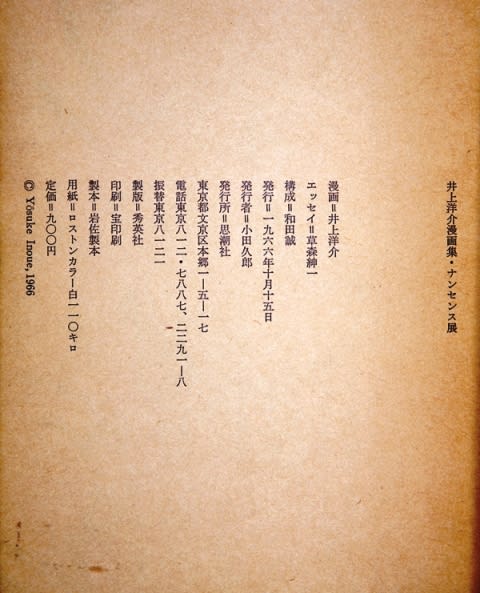 井上洋介漫画集・ナンセンス展
漫画＝井上洋介
エッセイ＝草森紳一
構成＝和田誠
発行＝一九六六年十月十五日
発行者＝小田久郎
発行所＝思潮社
東京都文京区本郷一―五―一七
電話東京八一二・七八八七、二二九一―八
振替東京八一二一
製版＝秀英社
印刷＝宝印刷
製本＝岩佐製本
用紙＝ロストンカラー白一一〇キロ
定価＝九〇〇円
© Yōsuke Inoue, 1966